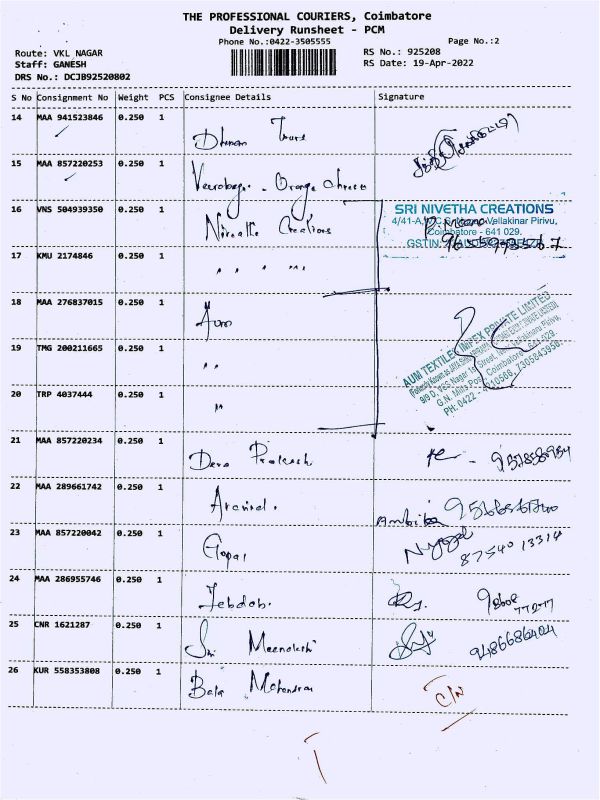 THE PROFESSIONAL COURIERS, Coimbatore
Delivery Runsheet - PCM
Phone No.:0422-3505555
Page No.:2
Route: VKL NAGAR
RS No.: 925208
Staff: GANESH
RS Date: 19-Apr-2022
DRS No.: DCJB92520802
S No Consignment No Weight PCS Consignee Details Signature
14 MAA 941523846 0.250 1
15 MAA 857220253 0.250 1
Orange
16 VNS 504939350 0.250 1
Creations
SRI NIVETHA CREATIONS
Vellakinar Pirivu,
Coimbatore - 641 029.
17 KMU 2174846 0.250 1
" " " "
18 MAA 276837015 0.250 1
AUM TEXTILES IMPEX PRIVATE LIMITED
Coimbatore - 641 029.
19 TMG 200211665 0.250 1
" "
20 TRP 4037444 0.250 1
"
21 MAA 857220234 0.250 1
Deva Prakash
22 MAA 289661742 0.250 1
Aravind.
Ambika
23 MAA 857220042 0.250 1
Gopal
87540 13314
24 MAA 286955746 0.250 1
25 CNR 1621287 0.250 1
Sri Meenakshi
9486686404
26 KUR 558353808 0.250 1
Bala Mahendran
C/N